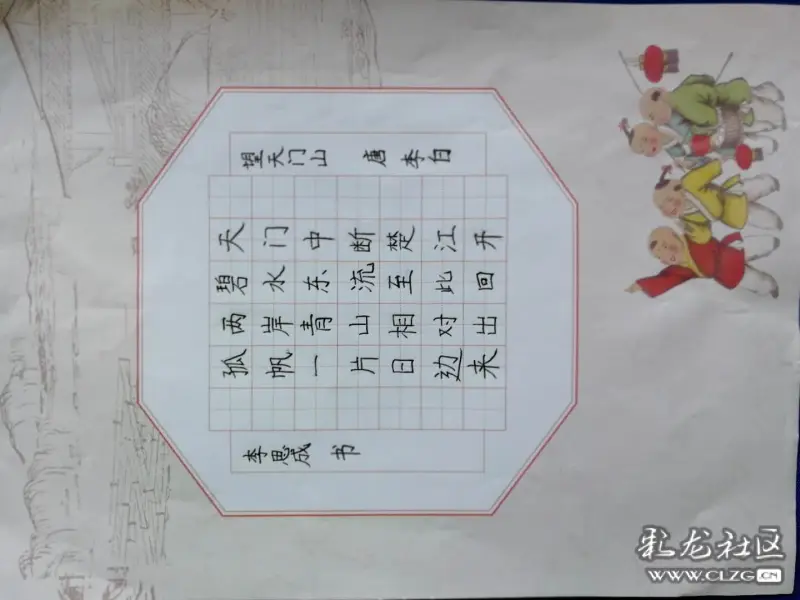 望天门山 唐 李白
天门中断楚江开
碧水东流至此回
两岸青山相对出
孤帆一片日边来
李思成 书
彩龙社区
WWW.CLZG.CN